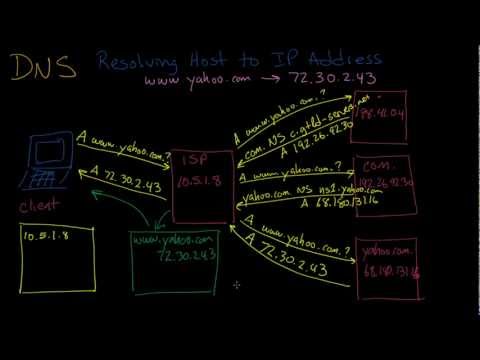 DNS Resolving Host to IP Address
www.yahoo.com → 72.30.2.43
A www.yahoo.com.?
A 72.30.2.43
client
10.5.1.8
ISP
10.5.1.8
www.yahoo.com
72.30.2.43
A www.yahoo.com.?
com. NS c.gtld-servers.net
A 192.26.92.30
A www.yahoo.com.?
yahoo.com NS ns1.yahoo.com
A 68.180.131.16
A www.yahoo.com.?
A 72.30.2.43
.
com.
192.26.92.30
yahoo.com.
68.180.131.16